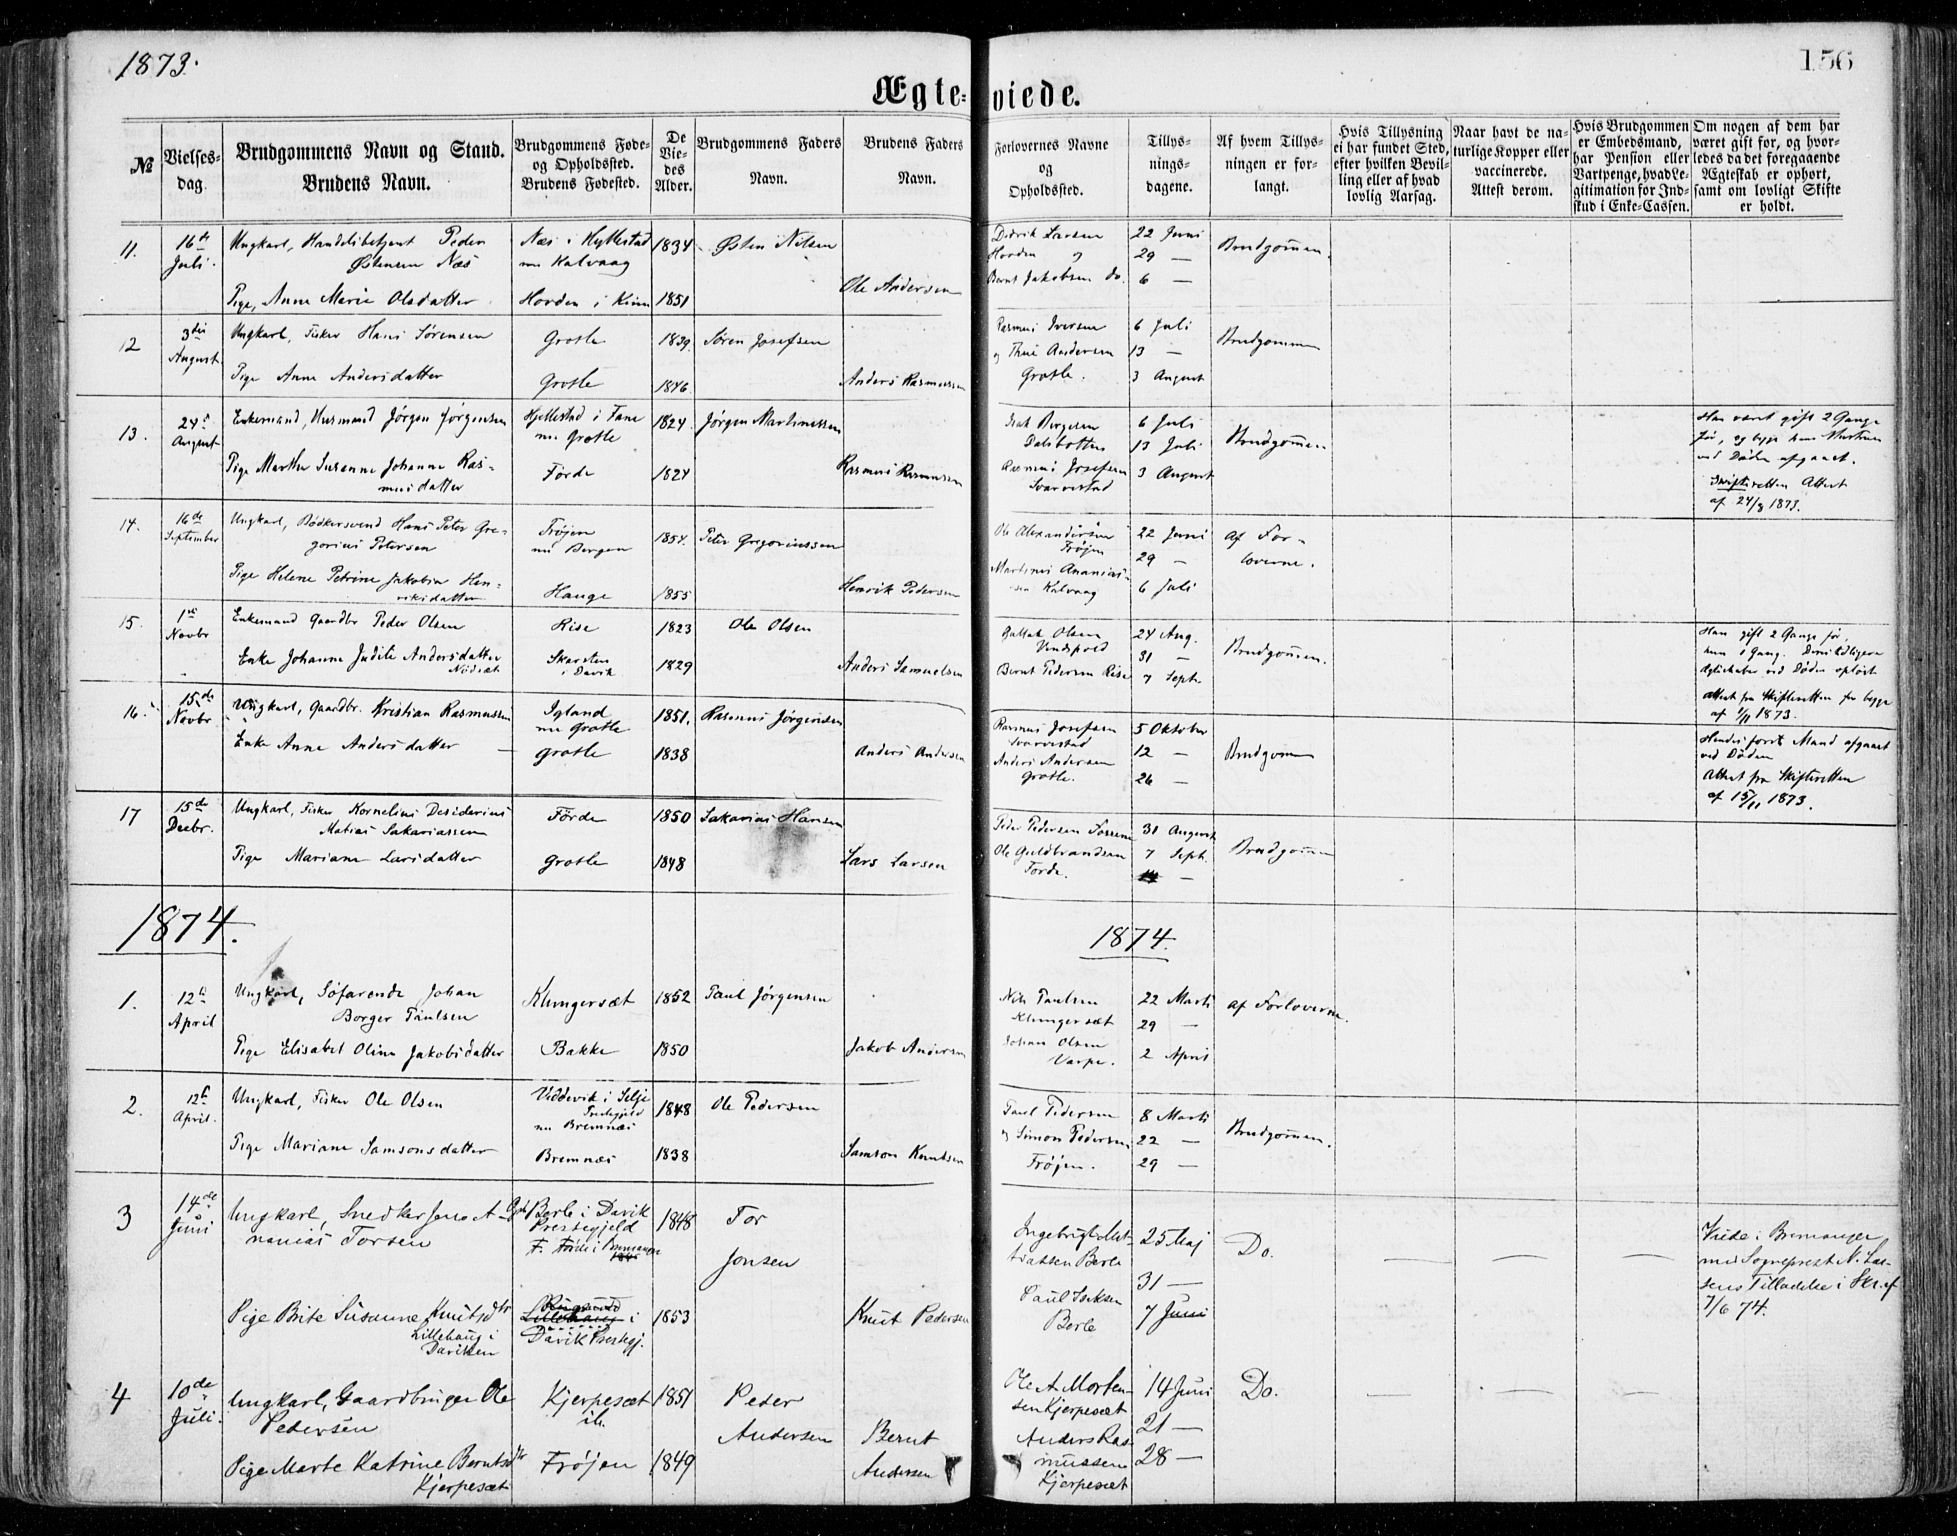 1873.
156
Ægte=viede.
№
Vielses-
dag.
Brudgommens Navn og Stand.
Brudens Navn.
Brudgommens Føde-
og Opholdssted.
Brudens Fødested.
De
Vie-
des
Alder.
Brudgommens Faders
Navn.
Brudens Faders
Navn.
Forlovernes Navne
og
Opholdssted.
Tillys-
nings-
dagene.
Af hvem Tillys-
ningen er for-
langt.
Hvis Tillysning
ei har fundet Sted,
efter hvilken Bevil-
ling eller af hvad
lovlig Aarsag.
Naar havt de na-
turlige Kopper eller
vaccinerede.
Attest derom.
Hvis Brudgommen
er Embedsmand,
har Pension eller
Vartpenge, hvad Le-
gitimation for Ind-
skud i Enke-Cassen.
Om nogen af dem har
været gift før, og hvor-
ledes da det foregaaende
Ægteskab er ophørt,
samt om lovligt Skifte
er holdt.
11. 16de Juli.
Ungkarl, Handelsbetjent Peder
Østensen Næs
Næs i Hyllestad
nu Kalvaag
1834
Østen Nilsen
Pige, Anne Marie Olsdatter
Hovden i Kinn
1851
Ole Andersen
Didrik Larsen
Hovden og
Bernt Jakobsen do.
22 Juni
29 —
6 —
Brudgommen.
12 3die August
Ungkarl, Fisker Hans Sørensen
Grotle
1839.
Søren Josefsen
Pige Anne Andersdatter
Grotle
1846
Anders Rasmussen
Rasmus Iversen
og Thue Andersen
Grotle.
6 Juli
13 —
3 August
Brudgommen
13. 24de August
Enkemand, Husmand Jørgen Jørgensen
Hjellestad i Fane
nu Grotle
1824.
Jørgen Martinussen
Pige Marthe Susanne Johanne Ras-
musdatter
Förde
1824
Rasmus Rasmussen
Isak Børgesen
Dalsbotten
Rasmus Josefsen
Svarvestad
6 Juli
13 Juli
3 August
Brudgommen
Han været gift 2 Gange
før, og begge hans Hustruer
ved Døden afgaaet.
Skifteretten Attest
af 24/8 1873.
14. 16de September
Ungkarl, Bødkersvend Hans Peter Gre-
gorius Petersen
Frøjen
nu Bergen
1854.
Peter Gregoriussen
Pige Helene Petrine Jakobine Hen-
riksdatter
Hauge
1855
Henrik Pedersen
Ole Alexandersen
Frøjen
Martinus Ananias-
sen Kalvaag
22 Juni
29 —
6 Juli
af For-
loverne.
15. 1ste Novbr
Enkemand Gaardbr Peder Olsen
Rise
1823
Ole Olsen
Enke Johanne Judite Andersdatter
Skarsten
i Davik
1829
Anders Samuelsen
Olsen
Bernt Pedersen Rise
24 Aug.
31 —
7 Septb.
Brudgommen.
Han gift 2 Gange før,
hun 1 Gang. Deres tidligere
Ægteskaber ved Døden opløst
Attest fra Skifteretten for begge
af 1/11 1873.
16. 15de Novbr
Ungkarl, Gaardbr. Kristian Rasmussen
Igland
nu Grotle
1851.
Rasmus Jørgensen
Enke Anne Andersdatter —
Grotle
1838
Anders Andersen
Rasmus Josefsen
Svarvestad
Anders Andersen
Grotle.
5 Oktober
12 —
26 —
Brudgommen
Hendes første Mand afgaaet
ved Døden
Attest fra Skifteretten
af 15/11 1873.
17 15de Decbr.
Ungkarl, Fisker Kornelius Desiderius
Matias Sakariassen
Förde
1850
Sakarias Hansen
Pige Mariane Larsdatter
Grotle
1848
Lars Larsen
Peder Pedersen
Ole Guldbrandsen
Førde.
31 August
7 Septb.
14 —
Brudgommen
1874.
1874.
1. 12te April
Ungkarl, Søfarende Johan
Borger Paulsen
Klungersæt
1852
Paul Jørgensen
Pige Elisabet Oline Jakobsdatter
Bakke
1850
Jakob Andersen
Nils Paulsen
Klungersæt
Johan Olsen
Varpe.
22 Marts
29 —
2 April
af Forloverne.
2. 12te April.
Ungkarl, Fisker Ole Olsen
Veddevik i Selje
Prestegjeld
nu Bremnæs
1848
Ole Pedersen
Pige Mariane Samsonsdatter
Bremnæs
1838
Samson Knutsen
Paul Pedersen
og Simon Pedersen
Frøjen.
8 Marts
22 —
29 —
Brudgommen.
3 14de Juni
Ungkarl, Snedker Jens A-
nanias Torsen
Oph. Berle i Davik
Prestegjeld
F. Förde i Bremanger
1848
Tor
Jonsen
Pige Brite Susanne Knutsdtr
Lillehaug i
Daviken
Rugsund
Lillehaug i
Davik Prestegj.
1853
Knut Pedersen
Ingebrigt Mat-
Berle
Paul Isaksen
Berle
25 Maj
31 —
7 Juni
Do.
— — —
Viede i Bremanger
med Sogneprest N. Las-
sens Tilladelse i Skr. af
7/6 74.
4 10de Juli.
Ungkarl, Gaardbruger Ole
Pedersen
Kjerpesæt
ib.
1851
Peder
Andersen
Pige Marte Katrine Berntsdtr
Kjerpesæt
Frøjen
1849
Bernt
Andersen
Ole A. Morten-
sen Kjerpesæt
Anders Ras-
mussen
Kjerpesæt
14 Juni
21 —
28 —
Do.
— — —